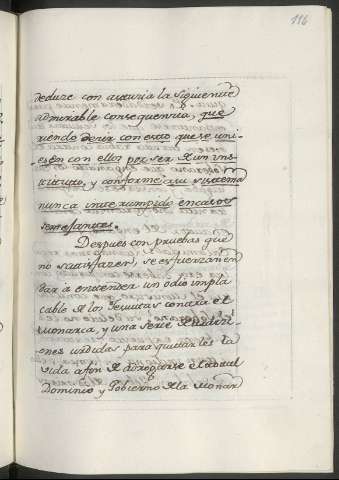 116
deduze con astucia la siguiente
admirable consequencia, que
riendo decir con esto que se uni-
esen con ellos por ser de un ins
tituto, y conforme a su sistema
nunca interrumpido en casos
semejantes.
Despues con pruebas que
no satisfazen, se esfuerzan en
dar à entender un odio impla
cable de los Jesuitas contra el
Monarca, y una serie de
ones urdidas para quitarles la
vida a fin de abrogarse el
Dominio y Govierno de la Monar